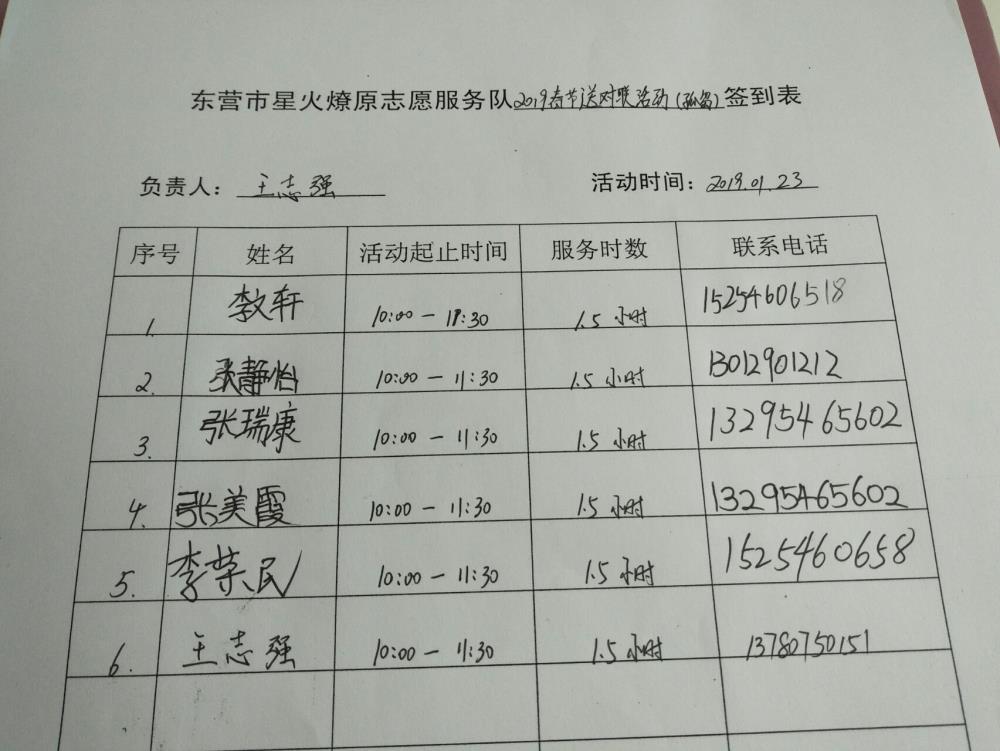 东营市星火燎原志愿服务队2019春节送对联活动签到表
负责人：王志强 活动时间：2019.01.23
序号 姓名 活动起止时间 服务时数 联系电话
1. 李文轩 10:00-11:30 1.5小时 15254606518
2. 张静怡 10:00-11:30 1.5小时 13012901212
3. 张瑞康 10:00-11:30 1.5小时 13295465602
4. 张美霞 10:00-11:30 1.5小时 13295465602
5. 李荣民 10:00-11:30 1.5小时 1525460658
6. 王志强 10:00-11:30 1.5小时 13780750151